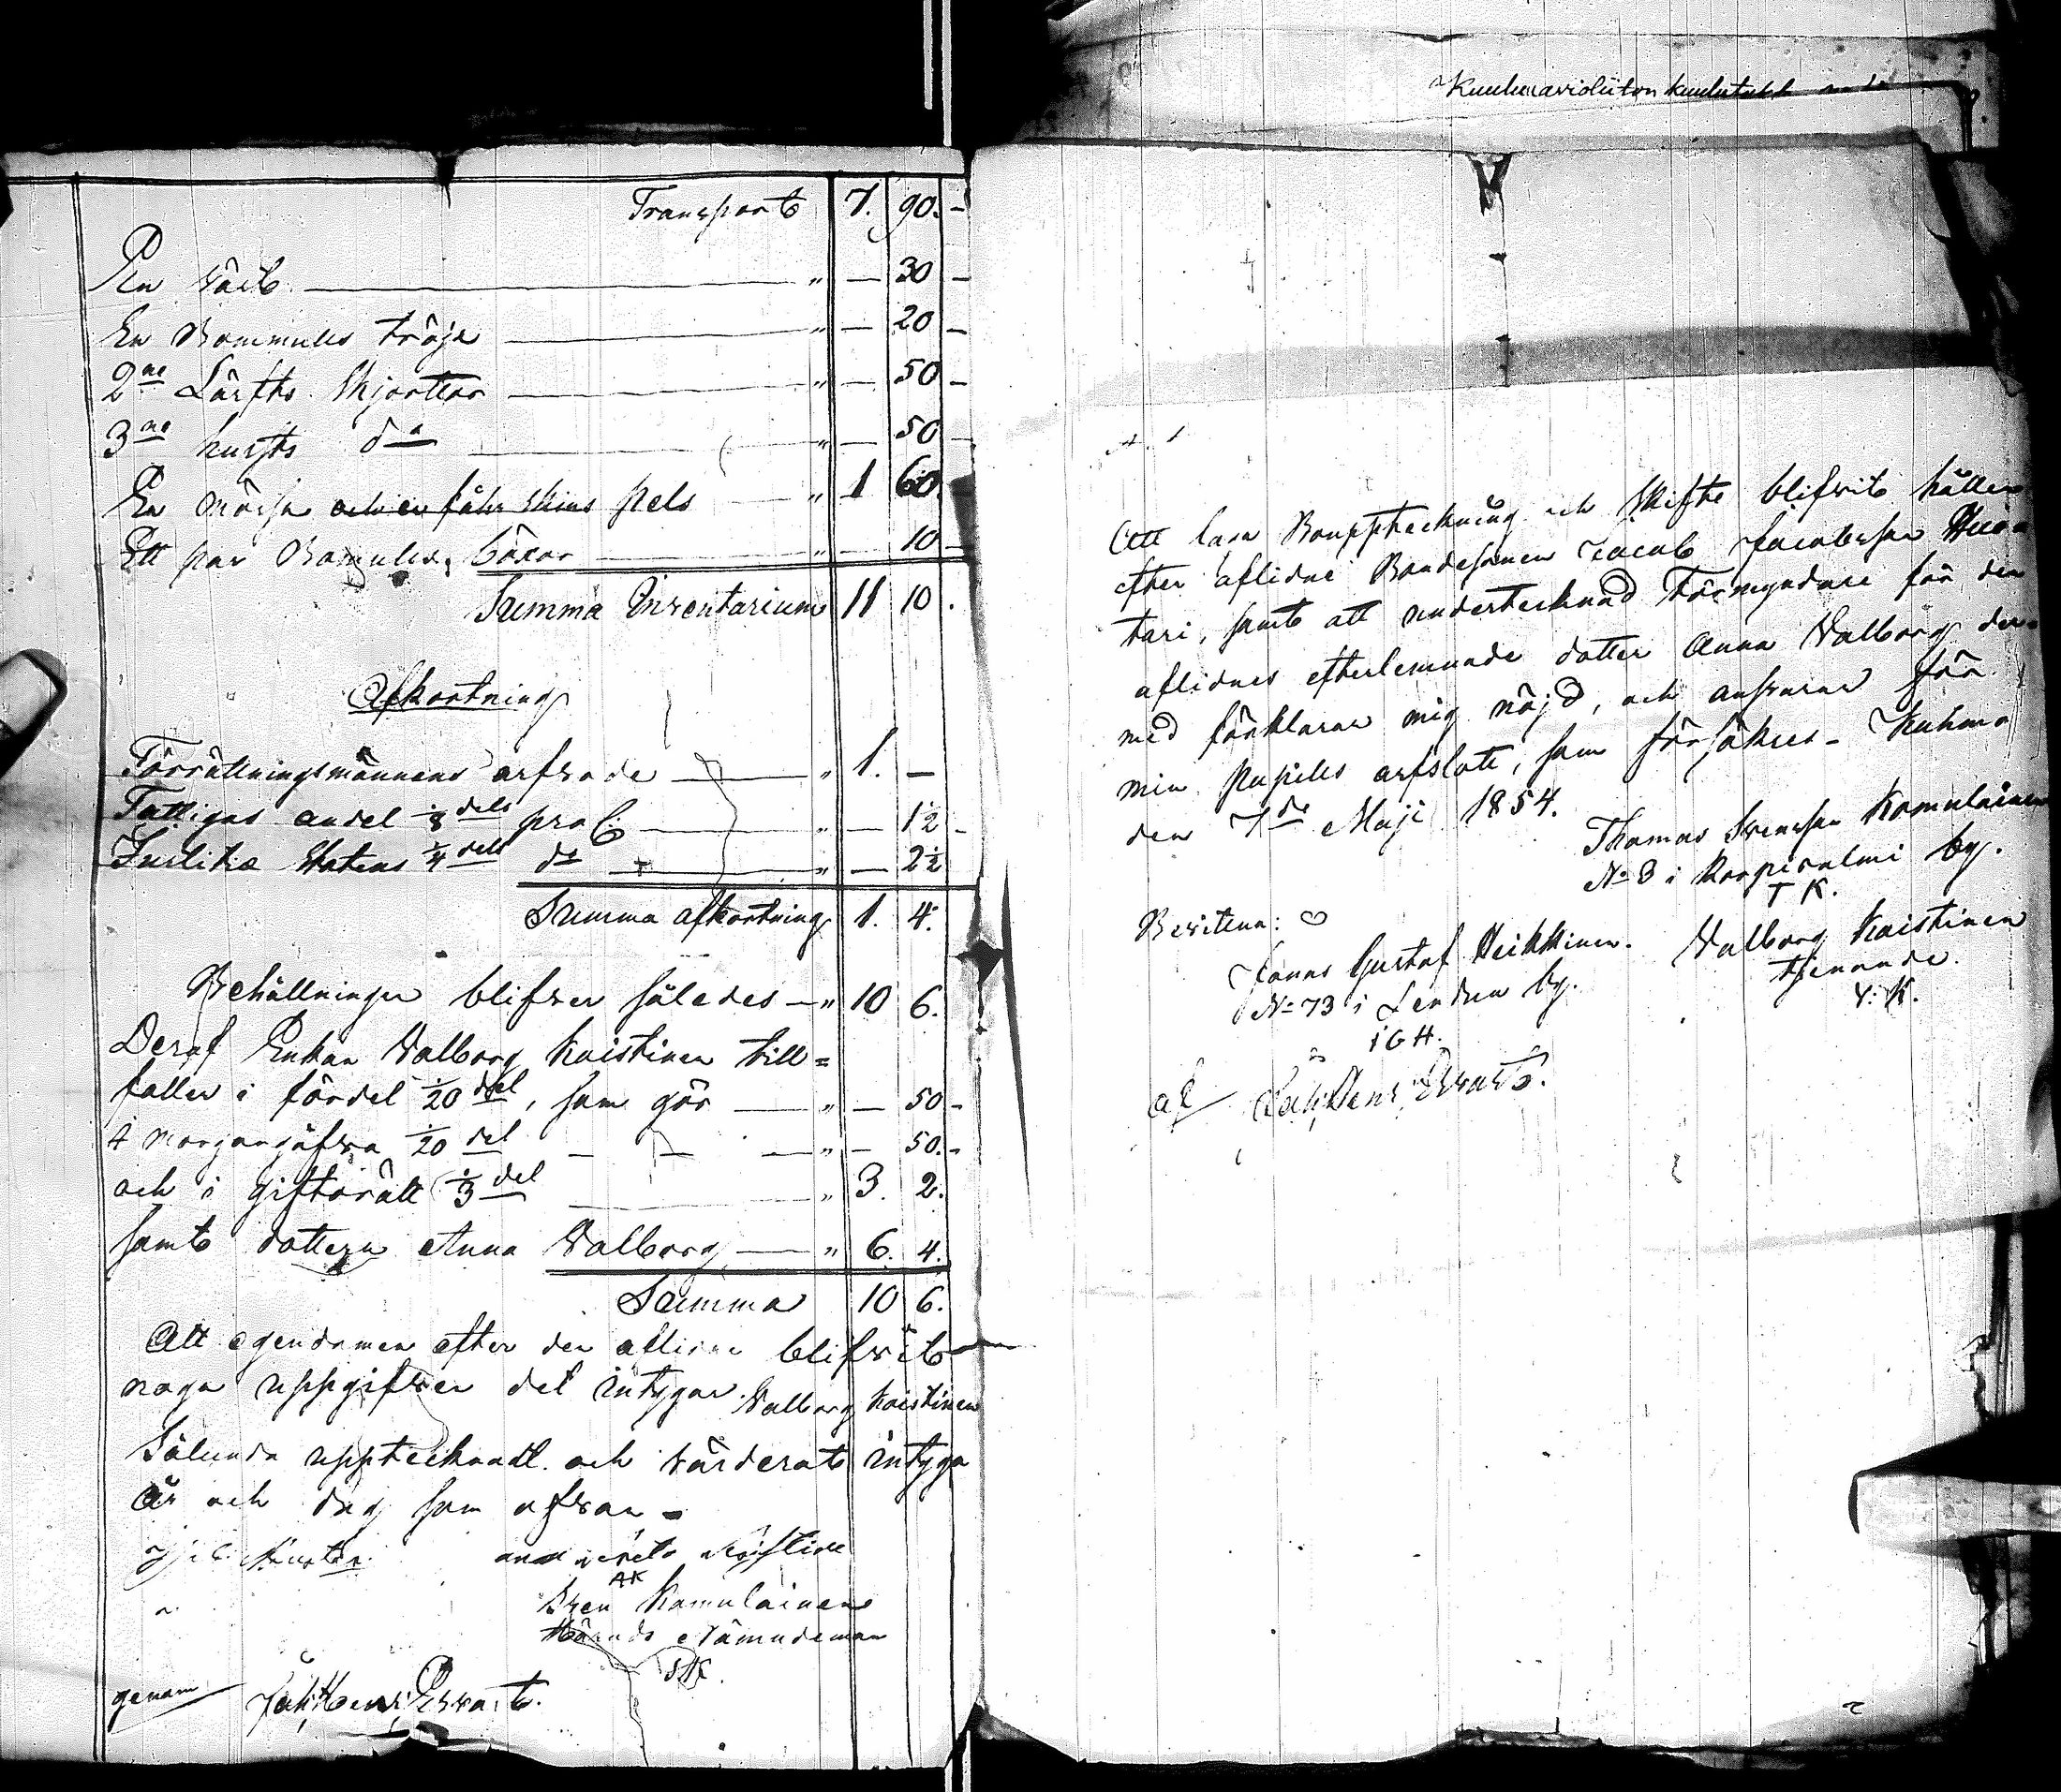 Transport 7. 90. -
En Väst " — 30 -
En Bommulls tröja " — 20 -
2ne Lärfts Skjortor " — 50 -
3ne hurfts do " — 50 -
En mössa och en fåhr skins pels " 1 60.
Ett par Bomulls böxor " — 10 -
Summa Inventarium 11 10.
Afkortning
Förrättningsmännens arfvode " 1. —
Fattigas andel 1/8 dels pro C. " — 1 1/2 -
Justitiæ Statens 1/4 dels do " — 2 1/2
Summa afkortning 1. 4.
Behållningen blifver således — " 10 6.
Deraf Enkan Valborg Kaistinen till=
faller i fördel 1/20 del, som gör — " — 50 -
i morgongåfva 1/20 del — " — 50. -
och i giftorätt 1/3 del " 3. 2.
samt dottern Anna Valborg — " 6. 4.
Summa 10 6.
Att egendomen efter den aflidne blifvit
noga uppgifven det intygar. Valborg Kaistinen
Sålunda upptecknadt och värderat intyga
År och dag som ofvan -
AK
Sven Komulainen
Härads Nämndeman
SK
genom Jak: Henr: Ervast.
Kuuluavioliiton kuulutukset
Att laga Bouppteckning och Skifte blifvit hållen
efter aflidne Bondesonen Jacob Jacobsson
tari, samt att undertecknad Förmyndare för den
aflidnes efterlemnade dotter Anna Valborg der-
med förklarar mig nöjd, och ansvarar för
min pupills arfslott, som försäkras - Kuhmo
den 7de Maji 1854.
Thomas Svensson Komulainen
No 3 i Korpisalmi by.
T K.
Bevittna:
Jonas Gustaf Heikkinen. Valborg Kaistinen
No 73 i Lendua by. tjenande.
I G H. V: K.
af Jak: Henr: Ervast.